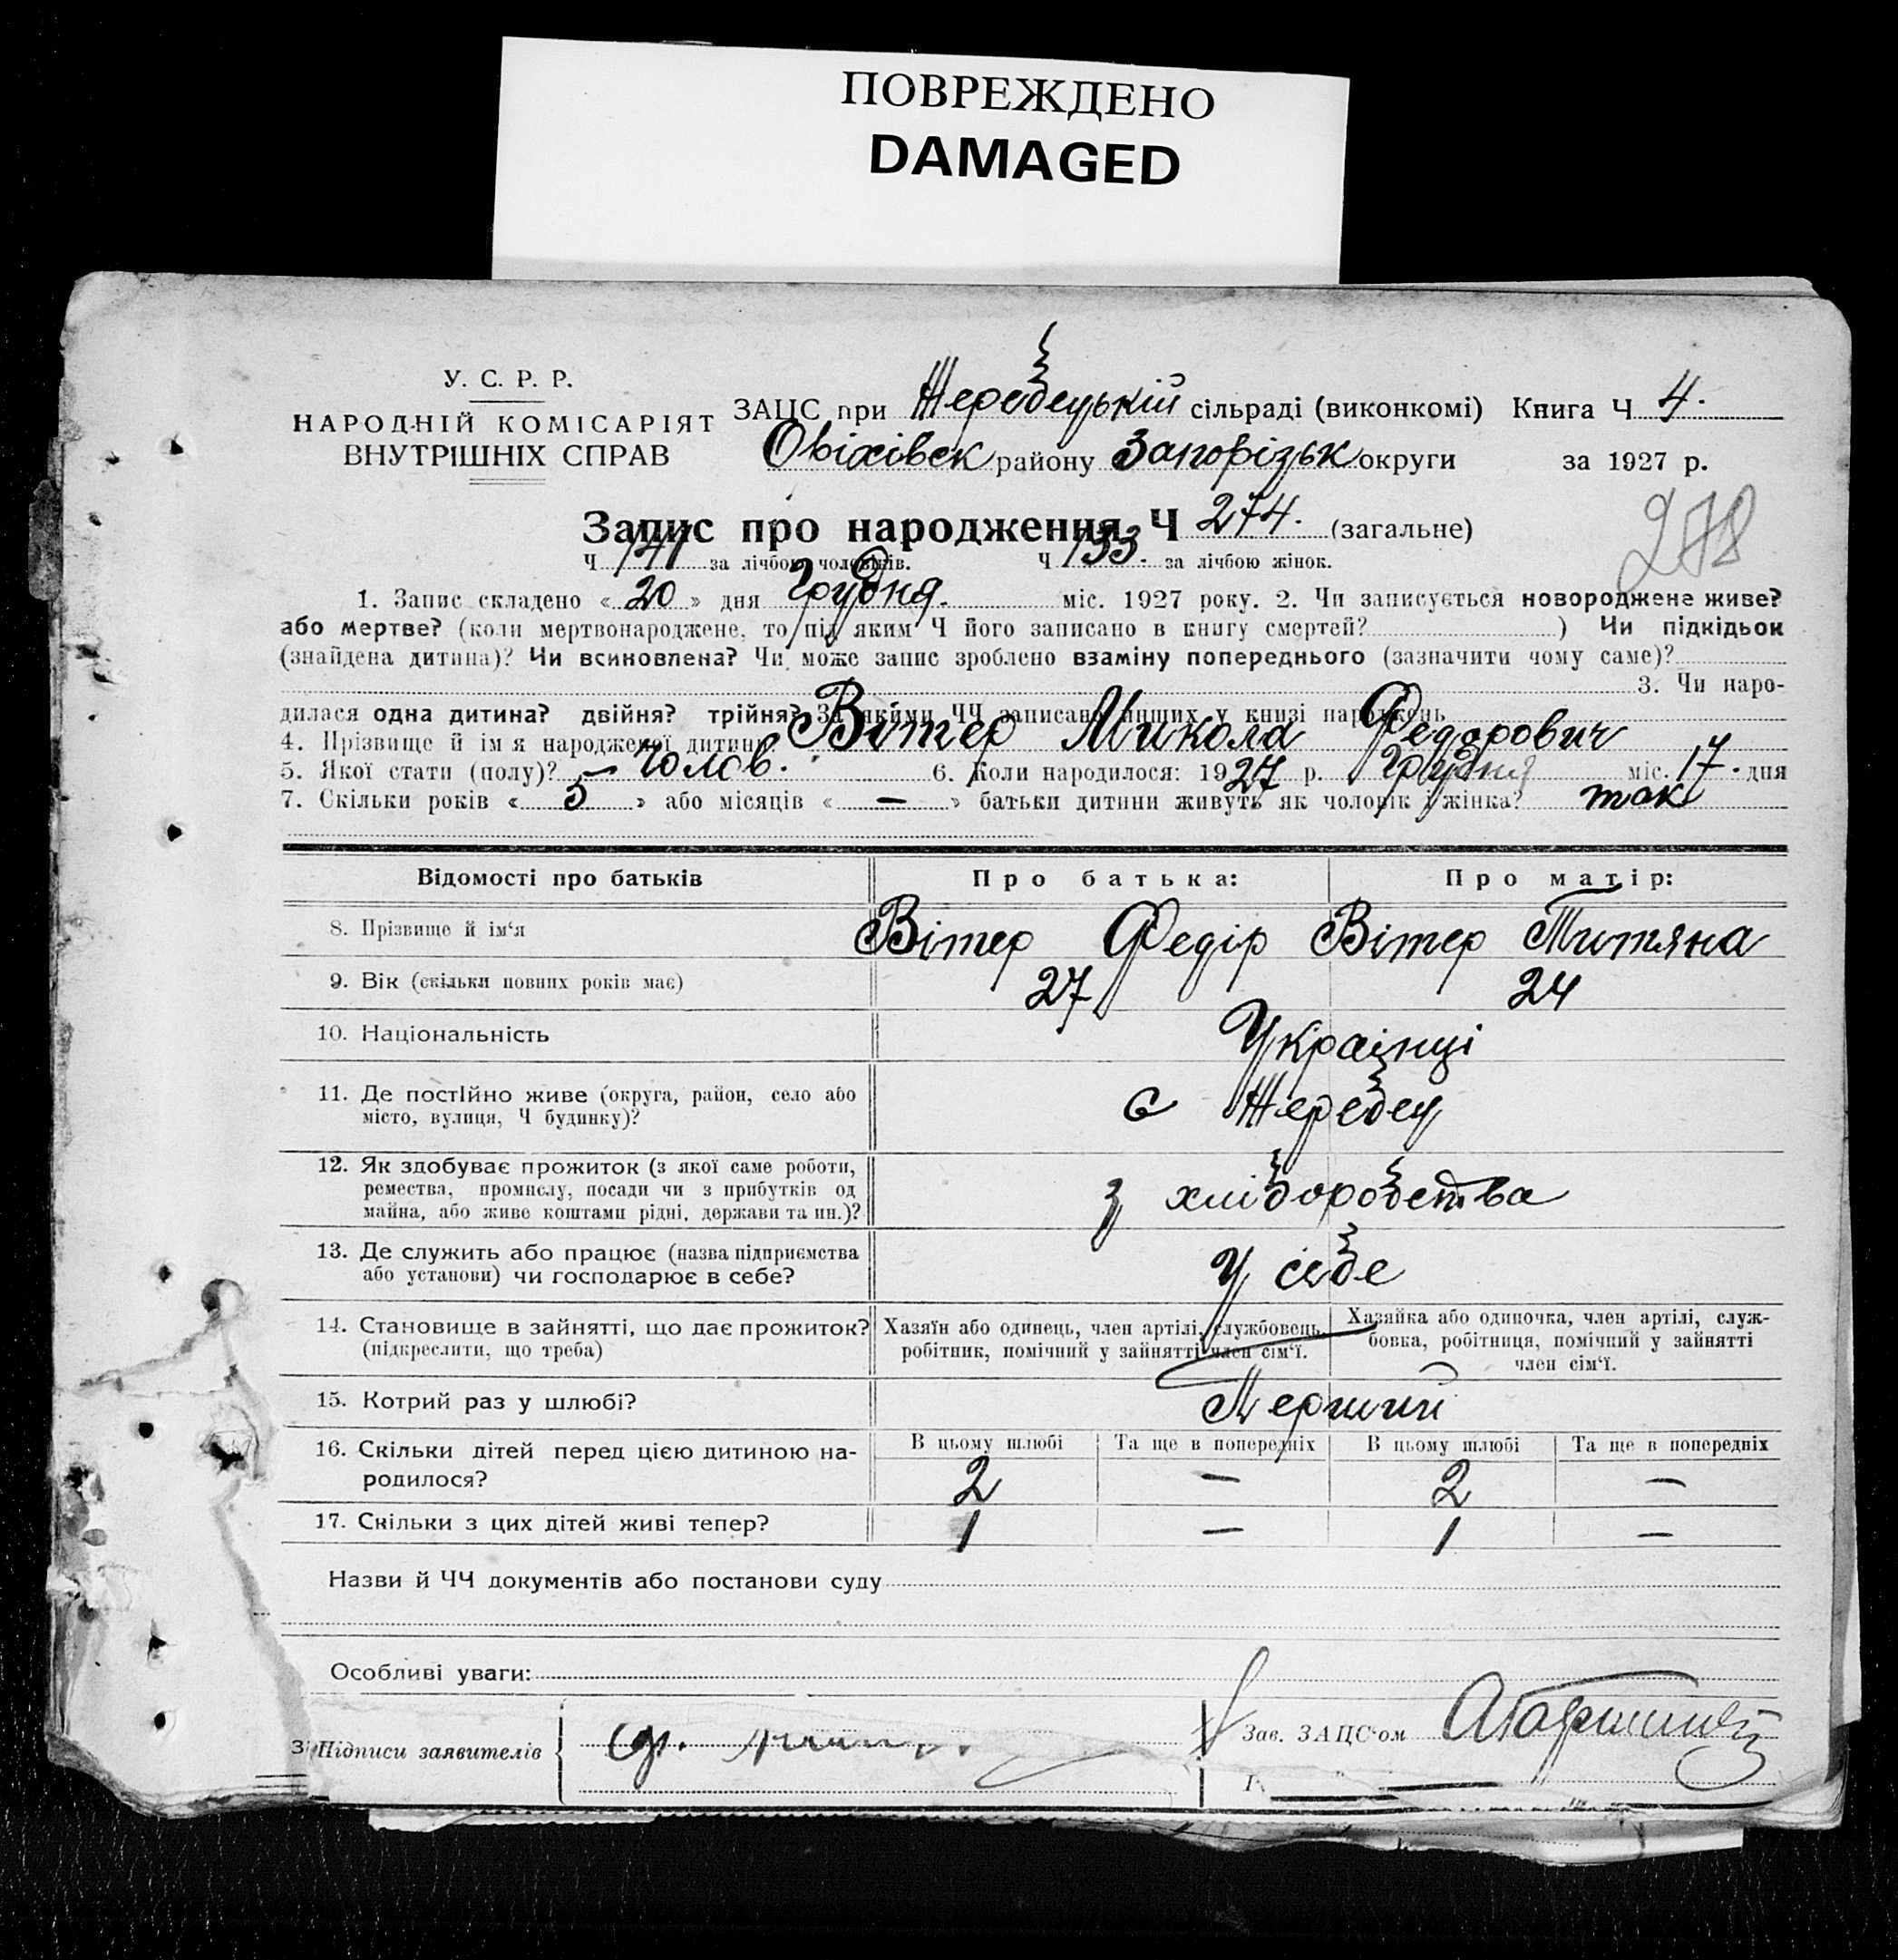 ПОВРЕЖДЕНО
DAMAGED
У. С. Р. Р.
НАРОДНІЙ КОМІСАРІЯТ
ВНУТРІШНІХ СПРАВ
ЗАЦС при Жеребецькій сільраді (виконкомі) Книга Ч 4.
Оріхівск району Запорізьк округи за 1927 р.
Запис про народження Ч 274. (загальне)
278
Ч 141 за лічбою чоловіків. Ч 133. за лічбою жінок.
1. Запис складено « 20 » дня Грудня. міс. 1927 року. 2. Чи записується новороджене живе?
або мертве? (коли мертвонароджене, то під яким Ч його записано в книгу смертей? ) Чи підкідьок
(знайдена дитина)? Чи всиновлена? Чи може запис зроблено взаміну попереднього (зазначити чому саме)?
3. Чи наро-
дилася одна дитина? двійня? трійня? За якими ЧЧ записано инших у книзі народжень
4. Прізвище й ім'я народженої дитини Вітер Микола Федорович
5. Якої стати (полу)? — Чолов. 6. Коли народилося: 1927 р. Грудня міс. 17. дня
7. Скільки років « 5 » або місяців « — » батьки дитини живуть як чоловік і жінка? так
Відомості про батьків Про батька: Про матір:
8. Прізвище й ім'я Вітер Федір Вітер Титяна
9. Вік (скільки повних років має) 27 24
10. Національність Українці
11. Де постійно живе (округа, район, село або
місто, вулиця, Ч будинку)? с Жеребец
12. Як здобуває прожиток (з якої саме роботи,
ремества, промислу, посади чи з прибутків од
майна, або живе коштами рідні, держави та ин.)? з хліборобства
13. Де служить або працює (назва підприємства
або установи) чи господарює в себе? У себе
14. Становище в зайнятті, що дає прожиток?
(підкреслити, що треба)
Хазяїн або одинець, член артілі, службовець,
робітник, помічний у зайнятті член сім'ї.
Хазяйка або одиночка, член артілі, служ-
бовка, робітниця, помічний у зайнятті
член сім'ї.
15. Котрий раз у шлюбі? Перший
16. Скільки дітей перед цією дитиною на-
родилося?
В цьому шлюбі Та ще в попередніх В цьому шлюбі Та ще в попередніх
2 — 2 —
17. Скільки з цих дітей живі тепер? 1 — 1 —
Назви й ЧЧ документів або постанови суду
Особливі уваги:
Підписи заявителів
Зав. ЗАЦС'ом